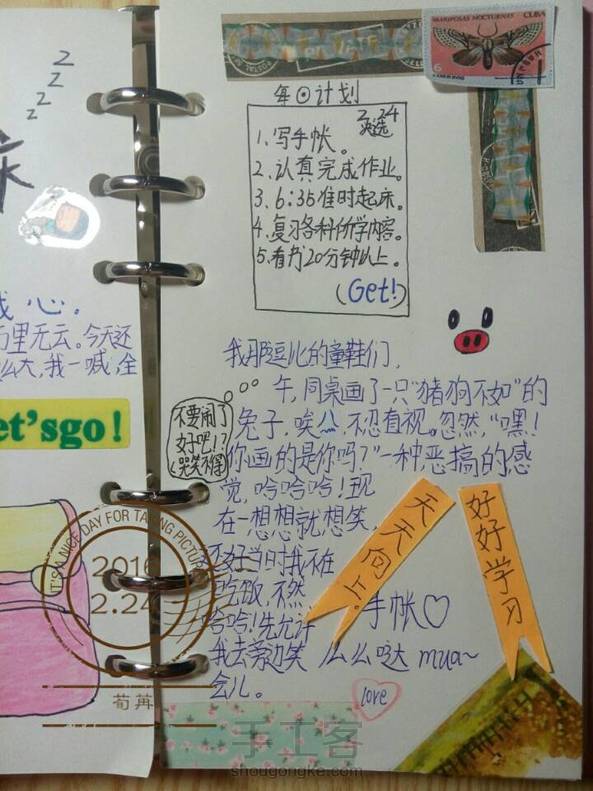 z
z
z
z
床
心。
万里无云。今天还
么大,我一喊,全
et'sgo!
MARIPOSAS NOCTURNAS CUBA
6
每日计划
2.24
1.写手帐。
2.认真完成作业。
3.6:35准时起床。
4.复习各科所学内容。
5.看书20分钟以上。
(Get!)
我那逗比的童鞋们,
午,同桌画了一只“猪狗不如”的
兔子,唉⋯,不忍直视。忽然,“嘿!
你画的是你吗?”一种恶搞的感
觉,哈哈哈!现
在一想想就想笑,
还好当时我不在
吃饭,不然
哈哈!先允许
我去旁边笑
会儿。
不要闹了
好吧!?
哭笑不得
天天向上。
好好学习
手帐♡
么么哒 mua~
love
IT'S A NICE DAY FOR TAKING PICTURE
2016
2.24
荀苒
手工客
shougongke.com